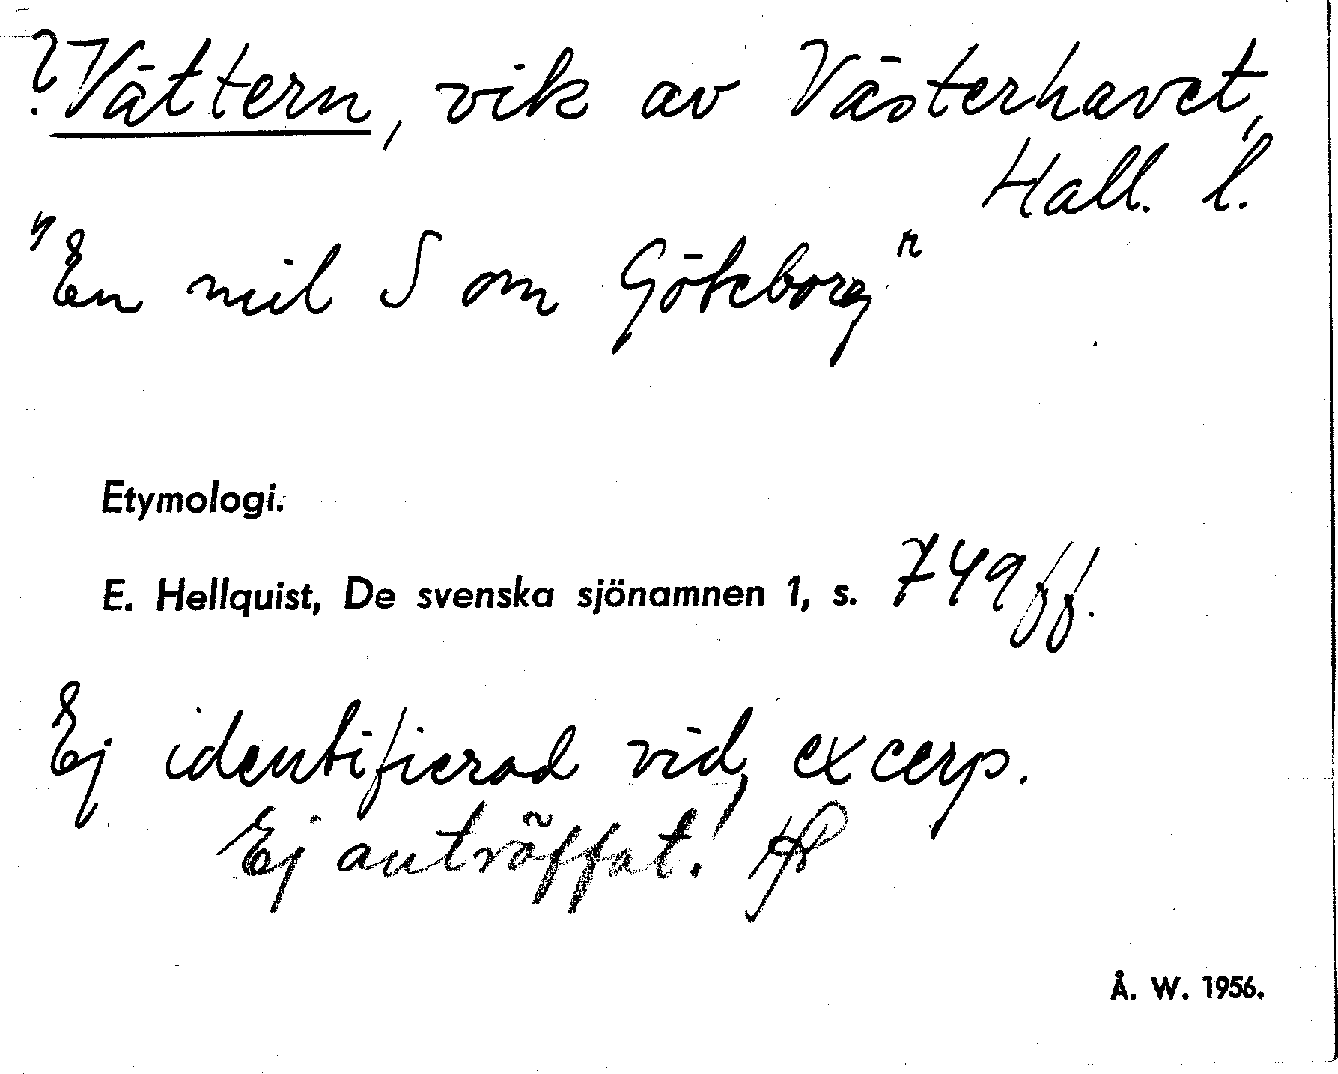 ? Vättern, vik av Västerhavet,
Hall. l.
"En mil S om Göteborg"
Etymologi.
E. Hellquist, De svenska sjönamnen 1, s. 749 ff.
Ej identifierad vid excerp.
Ej anträffat!
Å. W. 1956.